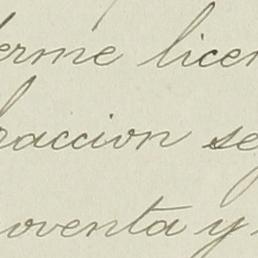 erme licen
raccion se
oventa y